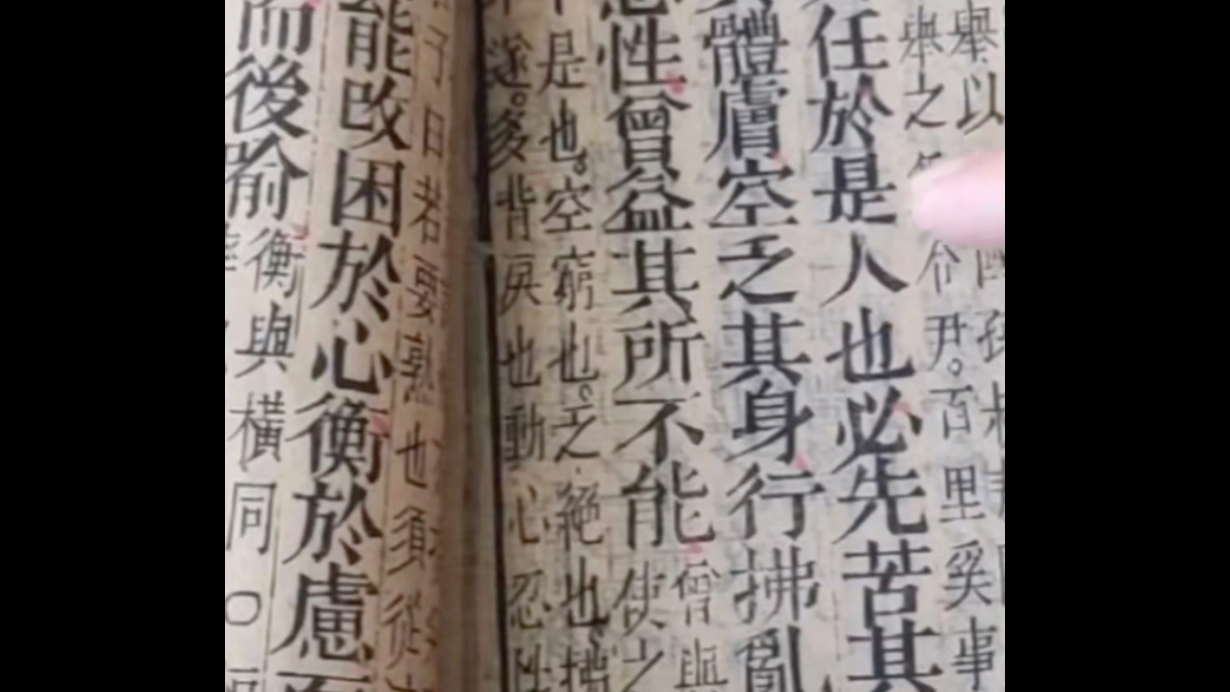 舉以
舉之尹。百里奚事
任於是人也必先苦其
體膚空乏其身行拂亂
忍性曾益其所不能曾與
使之
是也。空窮也。乏絕也。拂
遂。多背戾也動心忍性
子曰若要熟也須從
能改困於心衡於慮而
而後喻衡與橫同〇